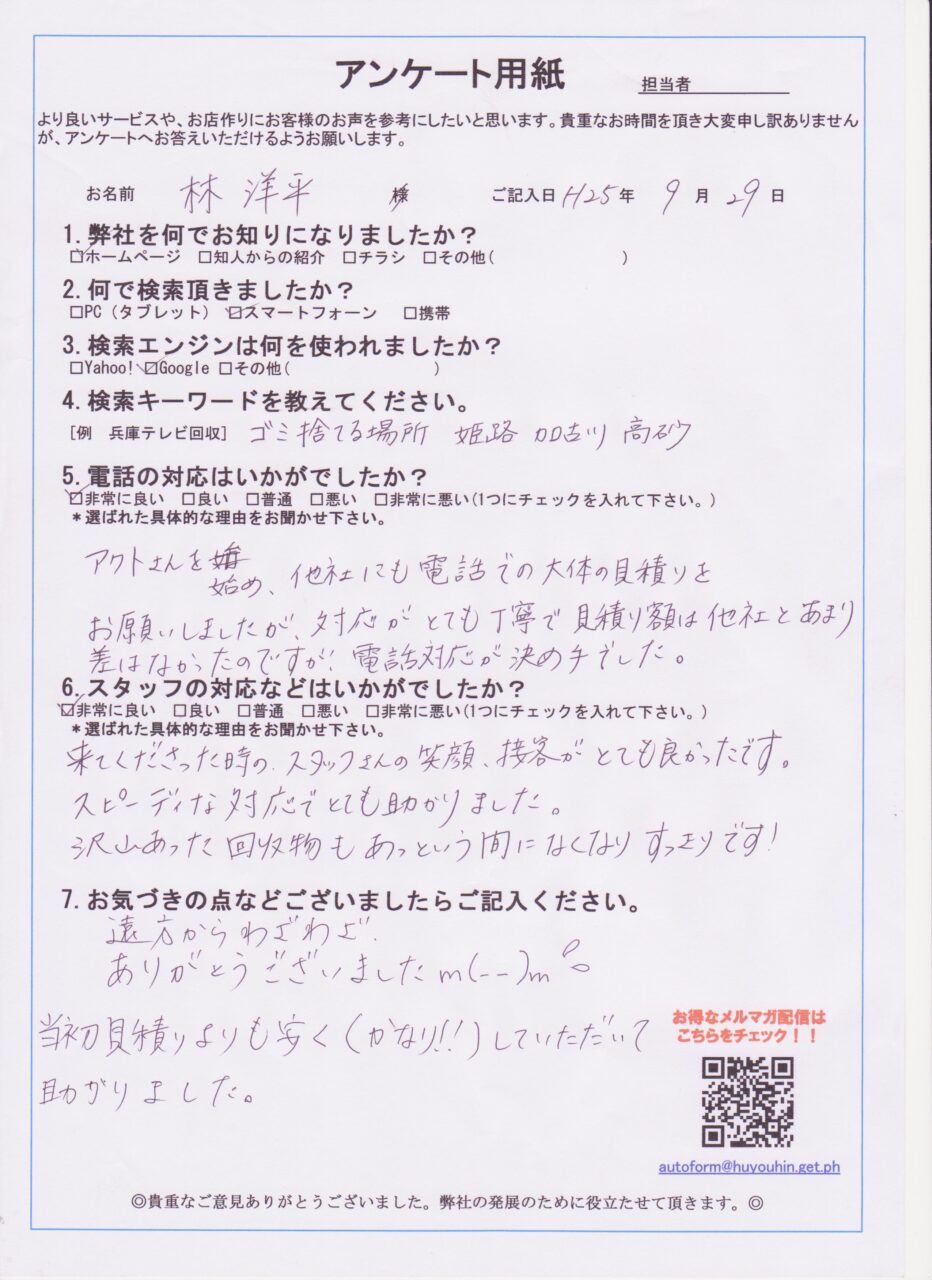 アンケート用紙
担当者
より良いサービスや、お店作りにお客様のお声を参考にしたいと思います。貴重なお時間を頂き大変申し訳ありません
が、アンケートへお答えいただけるようお願いします。
お名前 林 洋平 様 ご記入日 H25年 9月 29日
1.弊社を何でお知りになりましたか？
☑ホームページ □知人からの紹介 □チラシ □その他( )
2.何で検索頂きましたか？
□PC（タブレット） ☑スマートフォーン □携帯
3.検索エンジンは何を使われましたか？
□Yahoo! ☑Google □その他( )
4.検索キーワードを教えてください。
[例 兵庫テレビ回収] ゴミ捨てる場所 姫路 加古川 高砂
5.電話の対応はいかがでしたか？
☑非常に良い □良い □普通 □悪い □非常に悪い(1つにチェックを入れて下さい。)
＊選ばれた具体的な理由をお聞かせ下さい。
アクトさんを
始め、他社にも電話での大体の見積りを
お願いしましたが、対応がとても丁寧で見積り額は他社とあまり
差はなかったのですが、電話対応が決め手でした。
6.スタッフの対応などはいかがでしたか？
☑非常に良い □良い □普通 □悪い □非常に悪い(1つにチェックを入れて下さい。)
＊選ばれた具体的な理由をお聞かせ下さい。
来てくださった時の、スタッフさんの笑顔、接客がとても良かったです。
スピーディな対応でとても助かりました。
沢山あった回収物もあっという間になくなりすっきりです!
7.お気づきの点などございましたらご記入ください。
遠方からわざわざ、
ありがとうございましたm(--)m
当初見積りよりも安く(かなり!!)していただいて
助かりました。
お得なメルマガ配信は
こちらをチェック！！
autoform@huyouhin.get.ph
◎貴重なご意見ありがとうございました。弊社の発展のために役立たせて頂きます。◎